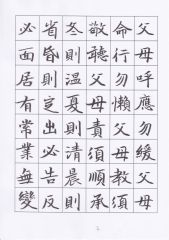 父母呼應勿緩父母
命行勿懶父母教須
敬聽父母責須順承
冬則溫夏則清晨則
省昏則定出必告反
必面居有常業無變